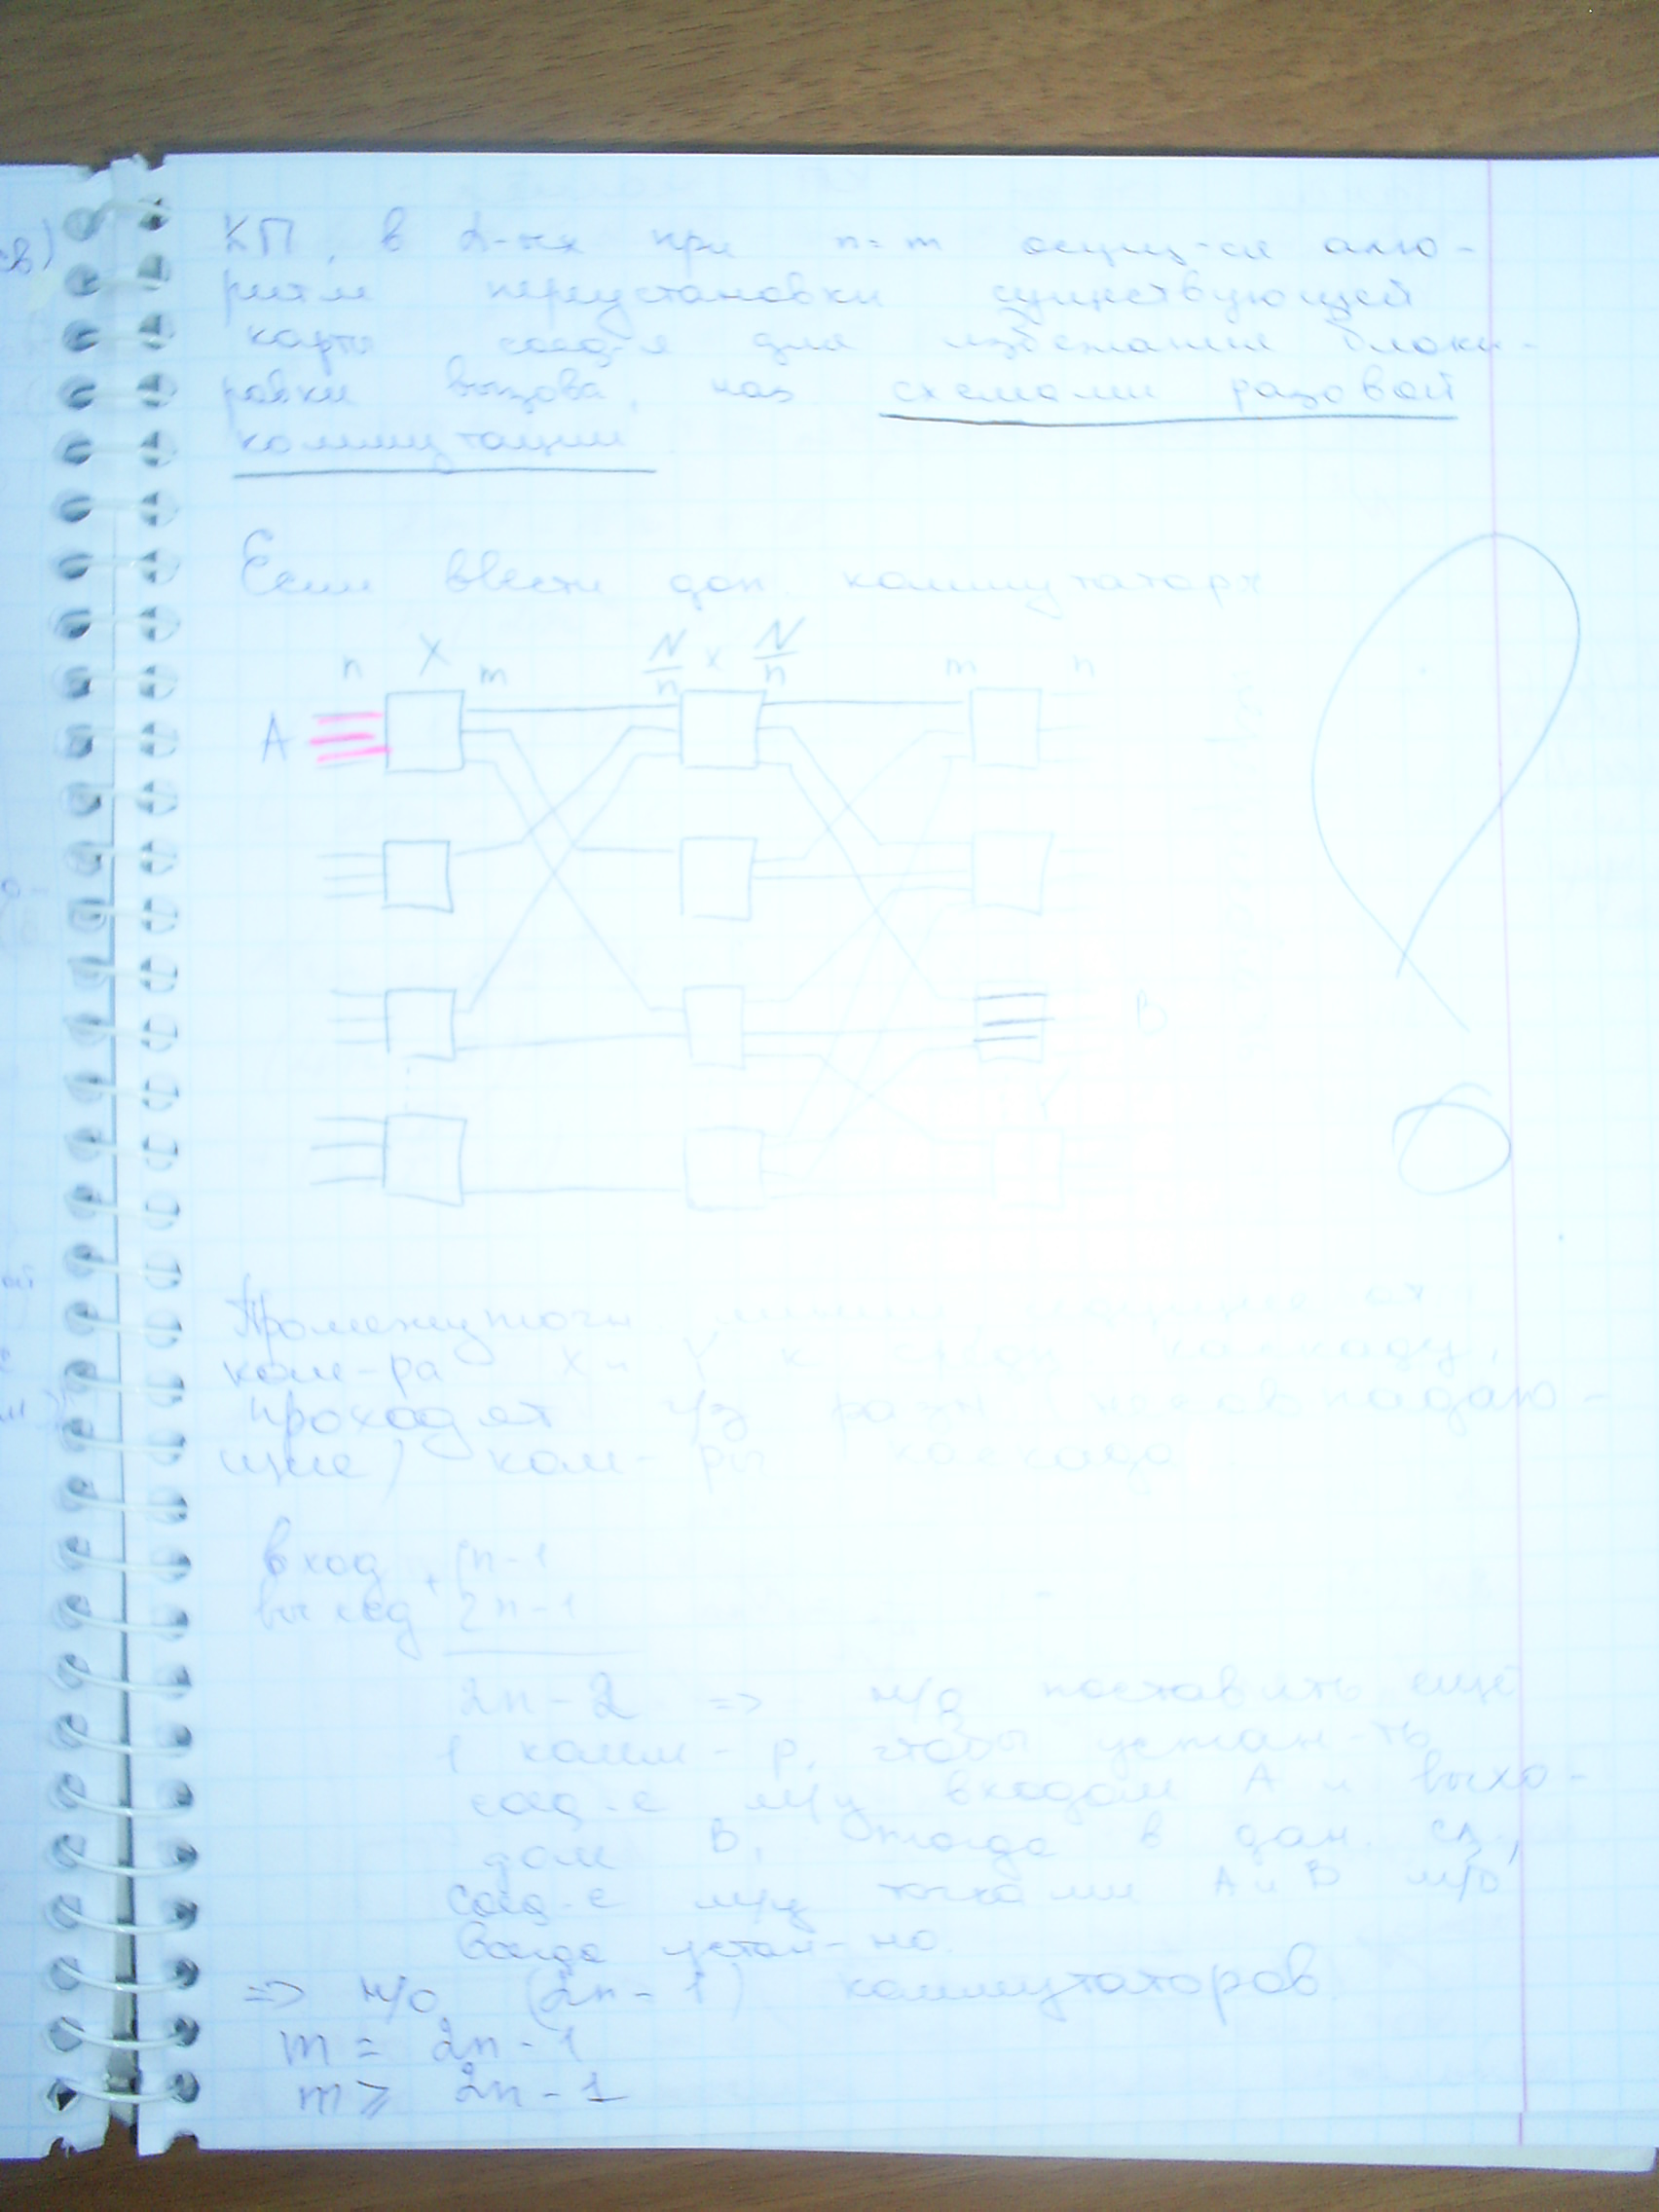 КП, в 2-ня при n=m осущ-ся алго-
ритм переустановки существующей
карты соед-я для избежания блоки-
ровки вызова, наз схемами разовой
коммутации
Если ввести доп. коммутаторы
n X m N/n x N/n m n
A
B
Y
Промежуточн линии идущие от
ком-ра X и Y к сред каскаду,
проходят ч/з разн несовпадаю-
щие) ком-ры каскада
вход n-1
выход + 2n-1
2n-2 => н/о поставить ещё
1 комм-р, чтобы устан-ть
соед-е м/у входом A и выхо-
дом B, тогда в дан. сл.,
соед-е м/у точками A и B м/б
всегда устан-но.
=> н/о (2n-1) коммутаторов
m = 2n-1
m ⩾ 2n-1